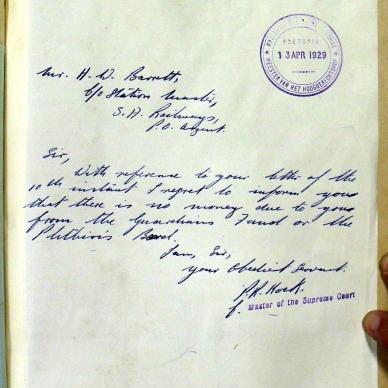 PRETORIA
13 APR 1929
MEESTER VAN HET HOOGGERECHTSHOF
Mr. H. W. Barrett,
c/o Station Master,
S. A. Railways,
P.O. Argent.
Sir,
With reference to your letter of the
10th instant I regret to inform you
that there is no money due to you
from the Guardians Fund or the
Board.
I am, Sir,
your Obedient Servant.
f. Master of the Supreme Court